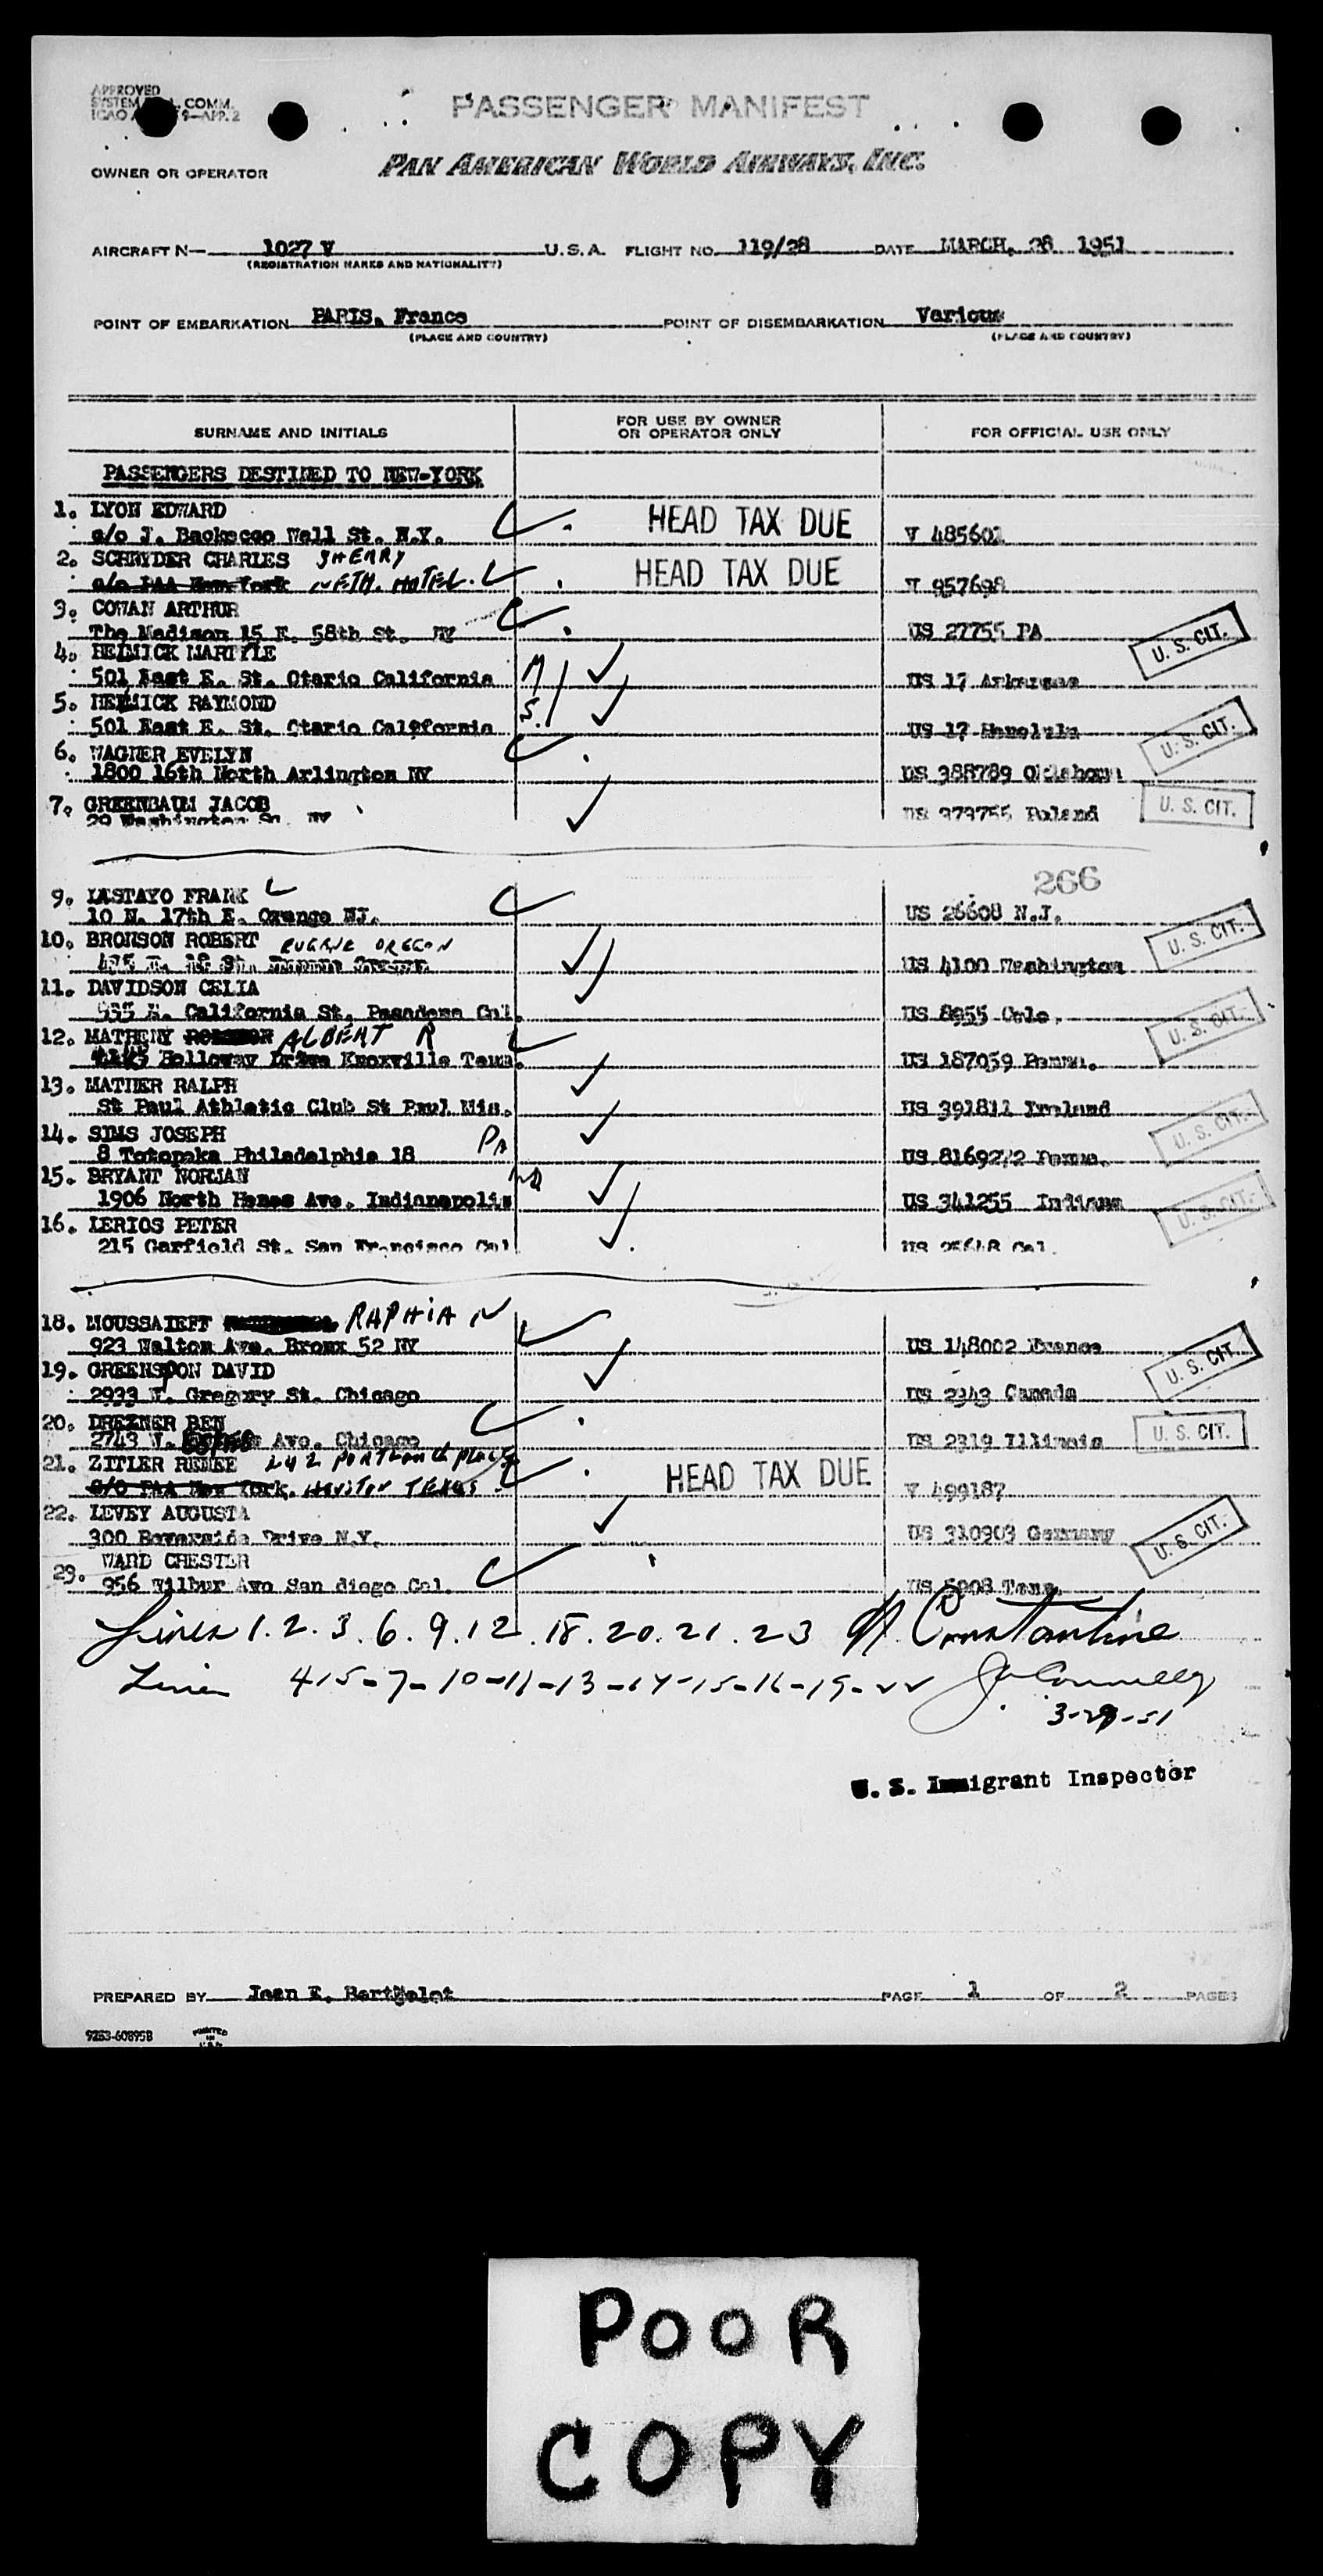 APPROVED
SYSTEM COMM.
ICAO 9—APP. 2
PASSENGER MANIFEST
OWNER OR OPERATOR PAN AMERICAN WORLD AIRWAYS, INC.
AIRCRAFT N— 1027 V U.S.A. FLIGHT NO. 119/28 DATE MARCH, 28 1951
(REGISTRATION MARKS AND NATIONALITY)
POINT OF EMBARKATION PARIS, France POINT OF DISEMBARKATION Various
(PLACE AND COUNTRY) (PLACE AND COUNTRY)
SURNAME AND INITIALS FOR USE BY OWNER OR OPERATOR ONLY FOR OFFICIAL USE ONLY
PASSENGERS DESTINED TO NEW-YORK
1. LYON EDWARD HEAD TAX DUE
c/o J. Wall St. N.Y. V 485601
2. SCHRYDER CHARLES SHERRY HEAD TAX DUE
c/o PAA New York NETH. HOTEL. V 957698
3. COWAN ARTHUR
The Madison 15 E. 58th St. NY US 27755 PA U. S. CIT.
4. HELMICK MARTYLE M
501 East E. St. Otario California US 17 Arkansas
5. HELMICK RAYMOND S.
501 East E. St. Otario California US 17 Honolulu U. S. CIT.
6. WAGNER EVELYN
1800 16th North Arlington NY US 388789 Oklahoma
7. GREENBAUM JACOB
29 Washington Sq. NY US 373755 Poland U. S. CIT.
266
9. LASTAYO FRANK
10 N. 17th E. Orange NJ. US 26608 N.J.
10. BRONSON ROBERT EUGENE OREGON U. S. CIT.
US 4100 Washington
11. DAVIDSON CELIA
California St. Pasadena Cal. US 8955 Colo.
12. MATHENY ALBERT R U. S. CIT.
Holloway Drive Knoxville Tenn. US 187059 Penna.
13. MATHER RALPH
St Paul Athletic Club St Paul Min. US 391811 Ireland
14. SIMS JOSEPH PA U. S. CIT.
8 Totopaka Philadelphia 18 US 81692/2 Penna.
15. BRYANT NORMAN IND
1906 North Ave. Indianapolis US 341255 Indiana
16. LERIOS PETER U. S. CIT.
215 Garfield St. San Francisco Cal US 25648 Cal.
18. MOUSSAIEFF RAPHIA N
923 Walton Ave. Bronx 52 NY US 148002 France
19. GREENSPOON DAVID U. S. CIT.
2933 W. Gregory St. Chicago US 2343 Canada
20. DREZNER BEN
2743 W. Ave. Chicago US 2319 Illinois U. S. CIT.
21. ZITLER RENEE 242 PORTLAND PLACE HEAD TAX DUE
c/o PAA New York. HOUSTON TEXAS V 499187
22. LEVEY AUGUSTA
300 Reverside Drive N.Y. US 310903 Germany U. S. CIT.
23. WARD CHESTER
956 Wilbur Ave San diego Cal. US 5908 Tenn.
Lines 1. 2. 3. 6. 9. 12. 18. 20. 21. 23 A. Constantine
Lines 4-5-7-10-11-13-14-15-16-19-22 J. Connelly
3-28-51
U. S. Immigrant Inspector
PREPARED BY Jean E. Berthelot PAGE 1 OF 2 PAGES
9253-608958 PRINTED IN U.S.A.
POOR
COPY